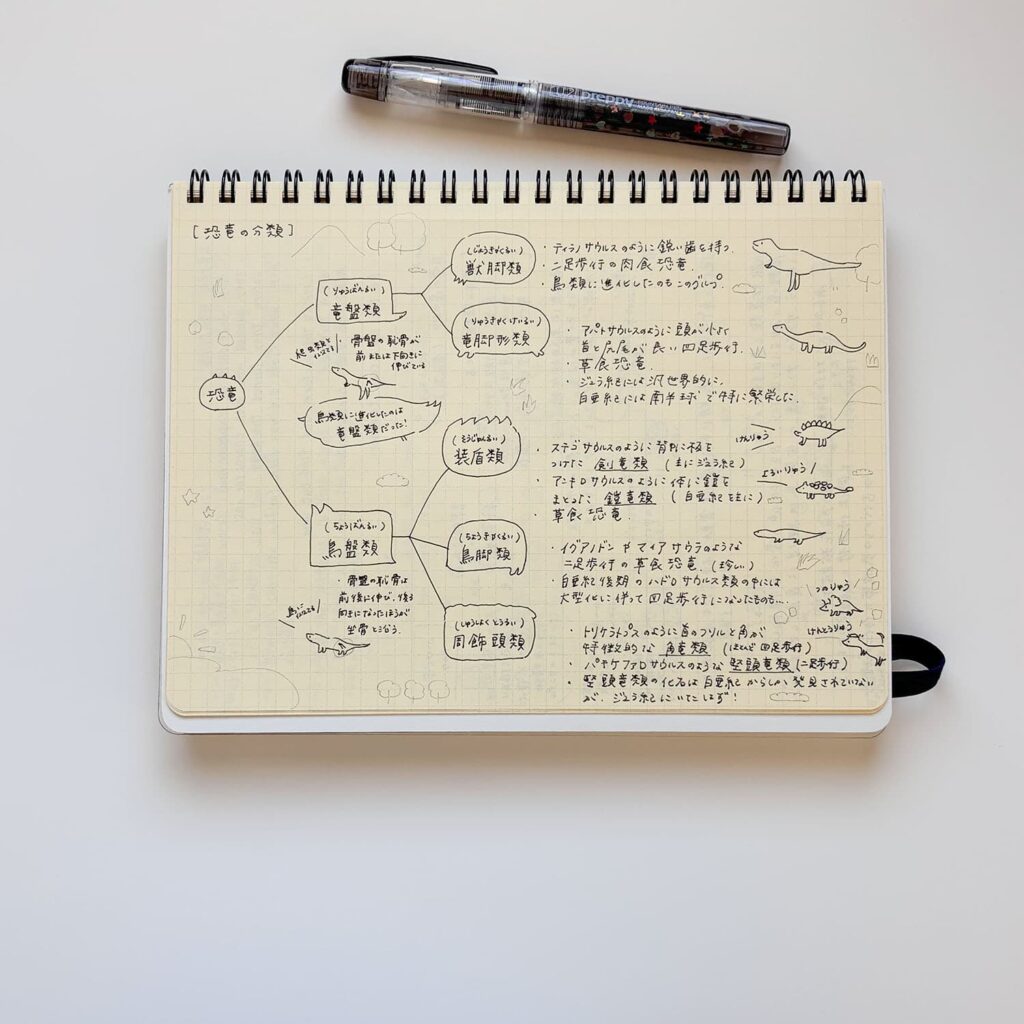 preppy
[恐竜の分類]
恐竜
(りゅうばんるい)
竜盤類
爬虫類と
似てる
・骨盤の恥骨が
前または下向きに
伸びている
鳥類に進化したのは
竜盤類だった!
(じゅうきゃくるい)
獣脚類
・ティラノサウルスのように鋭い歯を持つ
・二足歩行の肉食恐竜.
・鳥類に進化したのもこのグループ.
(りゅうきゃくけいるい)
竜脚形類
・アパトサウルスのように頭が小さく
首と尻尾が長い四足歩行.
・草食恐竜.
・ジュラ紀には汎世界的に,
白亜紀には南半球で特に繁栄した.
(ちょうばんるい)
鳥盤類
・骨盤の恥骨は
前後に伸び、後ろ
向きになったほうが
坐骨と沿う.
鳥に
似てる
(そうじゅんるい)
装盾類
・ステゴサウルスのように背中に板を
つけた 剣竜類 (主にジュラ紀)
・アンキロサウルスのように体に鎧を
まとった 鎧竜類 (白亜紀を主に)
・草食恐竜.
けんりゅう
よろいりゅう
(ちょうきゃくるい)
鳥脚類
・イグアノドンやマイアサウラのような
二足歩行の草食恐竜.(珍しい)
・白亜紀後期のハドロサウルス類の中には
大型化に伴って四足歩行になったものも...
(しゅうしょくとうるい)
周飾頭類
・トリケラトプスのように首のフリルと角が
特徴的な 角竜類 (ほとんど四足歩行)
・パキケファロサウルスのような 堅頭竜類 (二足歩行)
・堅頭竜類の化石は白亜紀からしか発見されていない
が、ジュラ紀にいたはず!
つのりゅう
けんとうりゅう